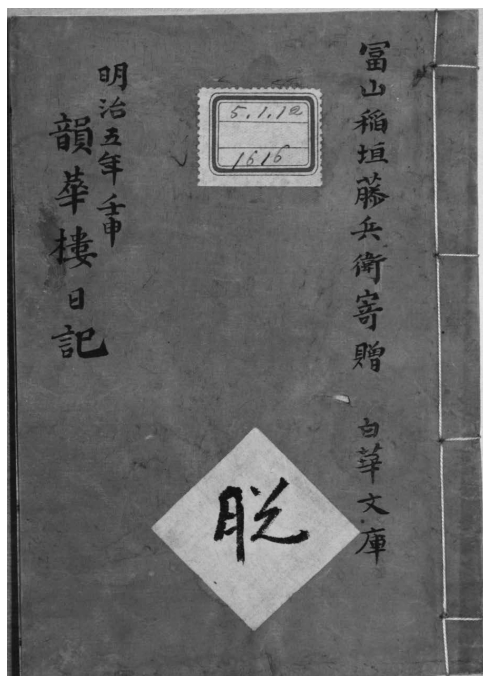 富山稲垣藤兵衛寄贈 白華文庫
5.1.12
1616
明治五年壬申
韻華楼日記
脱